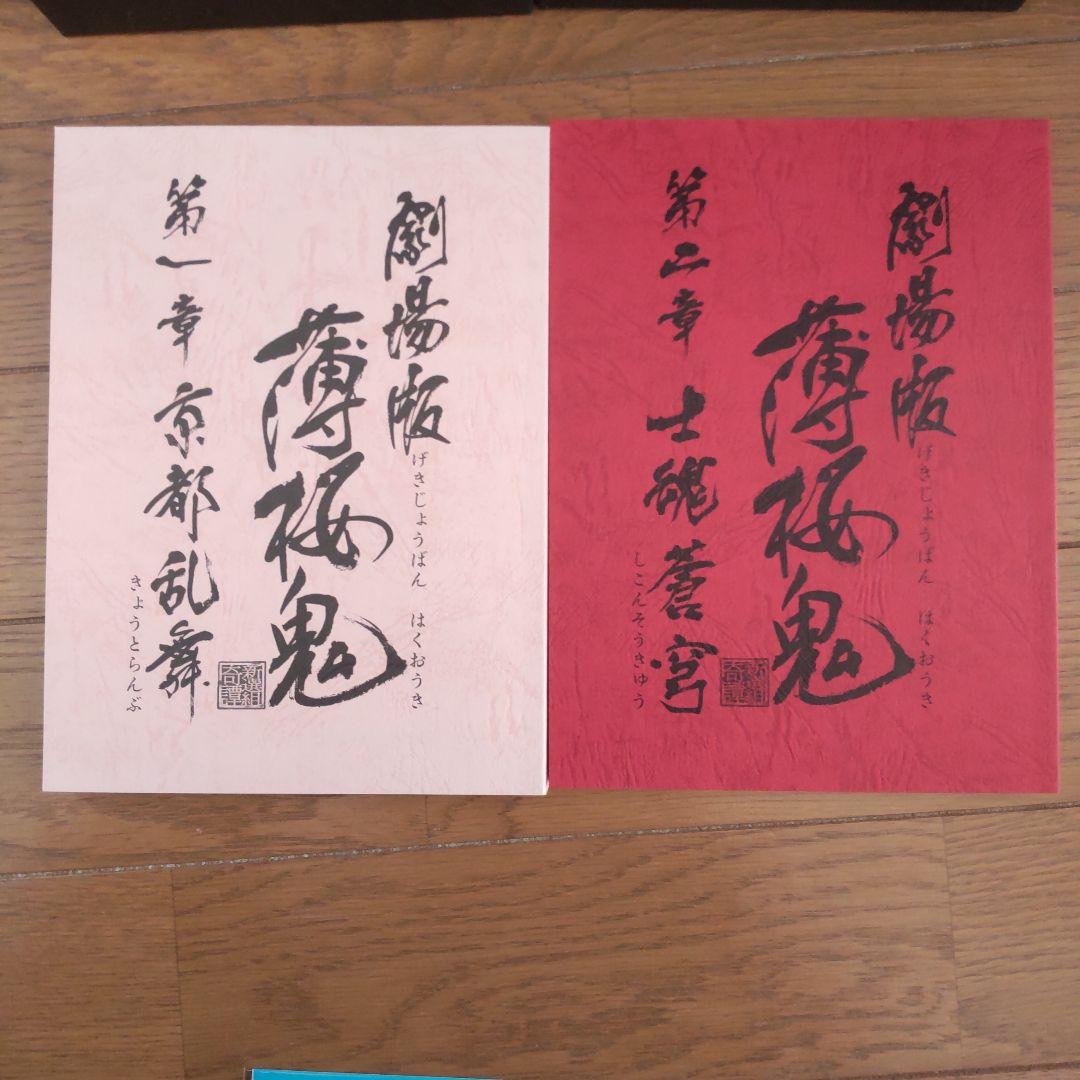 劇場版
げきじょうばん　はくおうき
薄桜鬼
新選組
奇譚
第一章　京都乱舞
きょうとらんぶ
劇場版
げきじょうばん　はくおうき
薄桜鬼
新選組
奇譚
第二章　士魂蒼穹
しこんそうきゅう